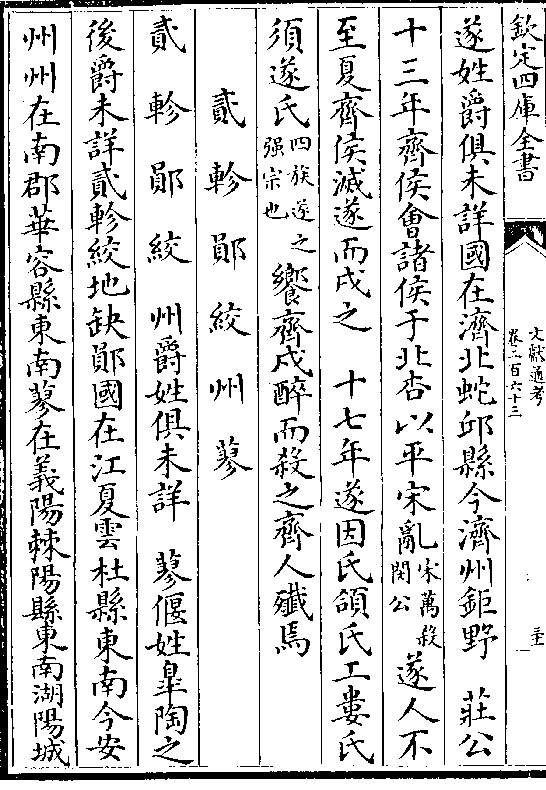 欽定四庫全書
文獻通考
卷二百六十三
遂姓爵俱未詳國在濟北蛇邱縣今濟州鉅野　莊公
十三年齊侯會諸侯于北杏以平宋亂宋萬殺閔公遂人不
至夏齊侯滅遂而戍之　十七年遂因氏頜氏工婁氏
須遂氏四族遂之强宗也饗齊戍醉而殺之齊人殲焉
貳軫鄖絞州蓼
貳軫鄖絞　州爵姓俱未詳　蓼偃姓臯陶之
後爵未詳貳軫絞地缺鄖國在江夏雲杜縣東南今安
州州在南郡華容縣東南蓼在義陽棘陽縣東南湖陽城